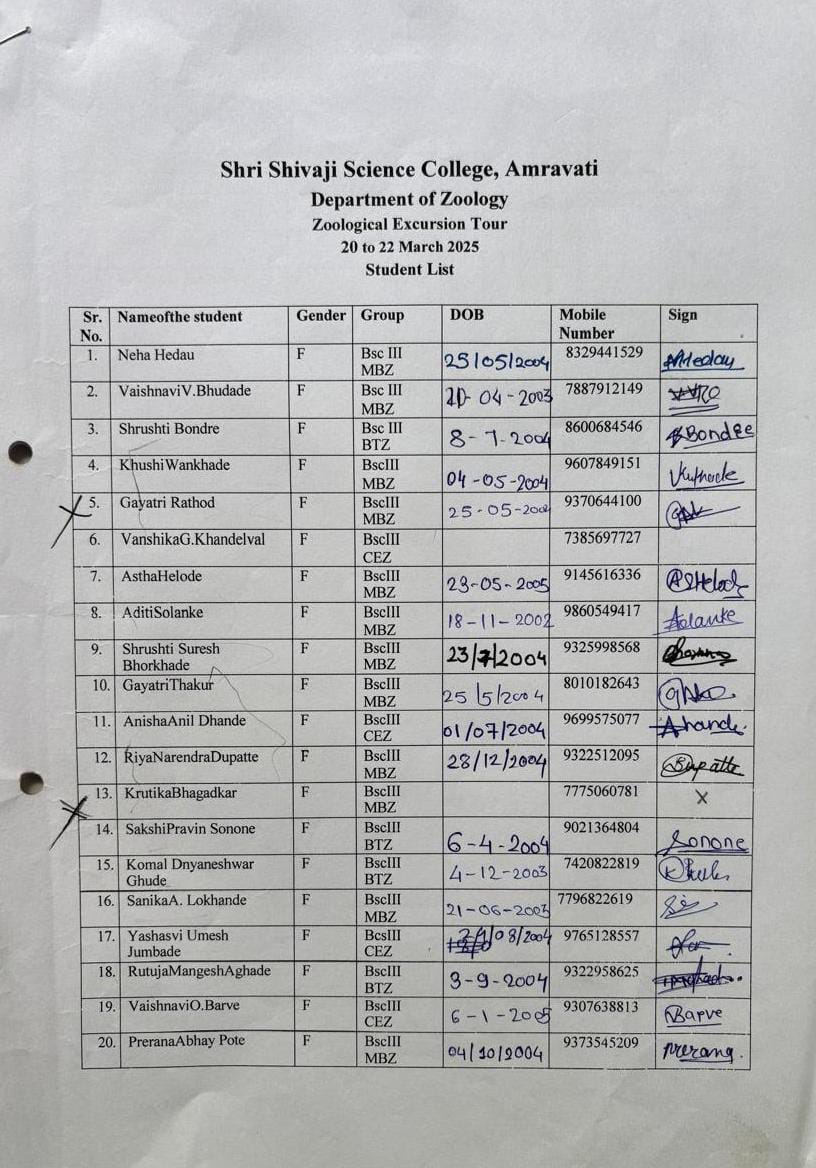 Shri Shivaji Science College, Amravati
Department of Zoology
Zoological Excursion Tour
20 to 22 March 2025
Student List
Sr. No. Nameofthe student Gender Group DOB Mobile Number Sign
1. Neha Hedau F Bsc III MBZ 25/05/2004 8329441529
2. VaishnaviV.Bhudade F Bsc III MBZ 04-2003 7887912149
3. Shrushti Bondre F Bsc III BTZ 8-7-2004 8600684546 Bondre
4. KhushiWankhade F BscIII MBZ 04-05-2004 9607849151
5. Gayatri Rathod F BscIII MBZ 25-05-2004 9370644100
6. VanshikaG.Khandelval F BscIII CEZ 7385697727
7. AsthaHelode F BscIII MBZ 23-05-2005 9145616336
8. AditiSolanke F BscIII MBZ 18-11-2002 9860549417
9. Shrushti Suresh Bhorkhade F BscIII MBZ 23/7/2004 9325998568
10. GayatriThakur F BscIII MBZ 25/5/2004 8010182643
11. AnishaAnil Dhande F BscIII CEZ 01/07/2004 9699575077
12. RiyaNarendraDupatte F BscIII MBZ 28/12/2004 9322512095 Dupatte
13. KrutikaBhagadkar F BscIII MBZ 7775060781 X
14. SakshiPravin Sonone F BscIII BTZ 6-4-2004 9021364804 Sonone
15. Komal Dnyaneshwar Ghude F BscIII BTZ 4-12-2003 7420822819
16. SanikaA. Lokhande F BscIII MBZ 21-06-2003 7796822619
17. Yashasvi Umesh Jumbade F BcsIII CEZ /08/2004 9765128557
18. RutujaMangeshAghade F BscIII BTZ 3-9-2004 9322958625
19. VaishnaviO.Barve F BscIII CEZ 6-1-2005 9307638813 Barve
20. PreranaAbhay Pote F BscIII MBZ 04/10/2004 9373545209 Prerana.